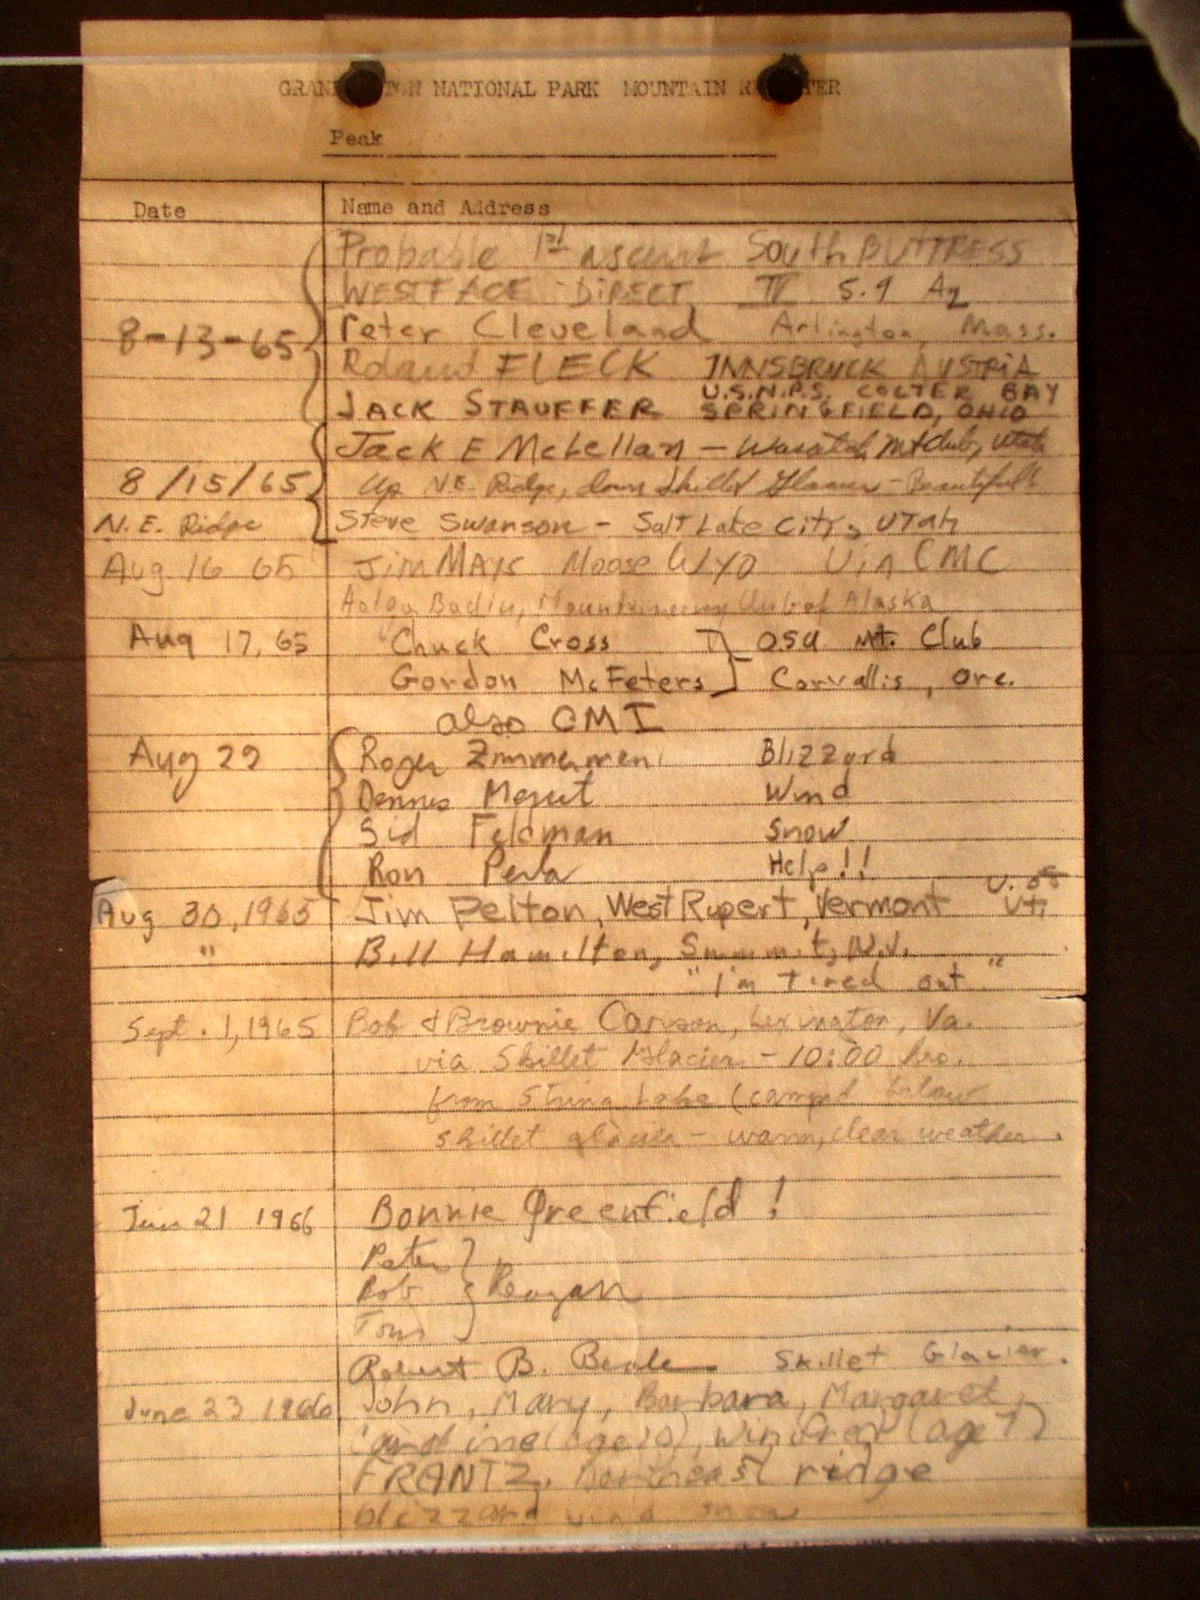 GRAND TETON NATIONAL PARK MOUNTAIN REGISTER
Peak
Date Name and Address
Probable 1st ascent South BUTTRESS
WESTFACE DIRECT IV 5.9 A2
8-13-65 Peter Cleveland Arlington, Mass.
Roland FLECK INNSBRUCK AUSTRIA
U.S.N.P.S. COLTER BAY
JACK STAUFFER SPRINGFIELD, OHIO
Jack E McLellan - Wasatch Mt Club, Utah
8/15/65 Up N.E. Ridge, down Skillet Glacier - Beautiful!
N.E. Ridge Steve Swanson - Salt Lake City, Utah
Aug 16 65 Jim MAYS Moose WYO Via CMC
Helga Badiu, Mountaineering Club of Alaska
Aug 17, 65 Chuck Cross OSU Mt. Club
Gordon McFeters Corvallis, Ore.
also CMI
Aug 29 Roger Zimmerman Blizzard
Dennis Wind
Sid Feldman Snow
Ron Perla Help!!
U. of
Aug 30, 1965 Jim Pelton, West Rupert, Vermont Vt.
" Bill Hamilton, Summit, N.J.
"I'm tired out"
Sept. 1, 1965 Bob & Brownie Carson, Lexington, Va.
via Skillet Glacier - 10:00 hrs.
from String Lake (camped below
skillet glacier - warm, clear weather.
Jun 21 1966 Bonnie Greenfield!
Peter
Rob Reagan
Tom
Robert B. Skillet Glacier.
June 23 1966 John, Mary, Barbara, Margaret,
Caroline (age 10), Winifred (age 7)
FRANTZ. Northeast ridge
blizzard wind snow